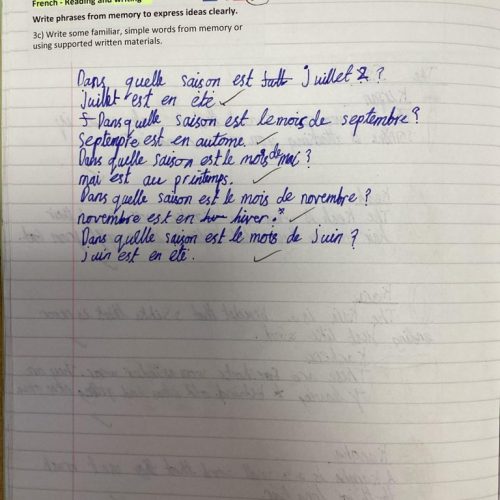 French - Reading and writing
Write phrases from memory to express ideas clearly.
3c) Write some familiar, simple words from memory or
using supported written materials.
Dans quelle saison est Juillet ?
Juillet est en été
Dans quelle saison est le mois de septembre ?
Septempre est en autome.
Dans quelle saison est le mois de mai ?
mai est au printemps.
Dans quelle saison est le mois de novembre ?
novembre est en hiver.
Dans quelle saison est le mois de juin ?
Juin est en été.